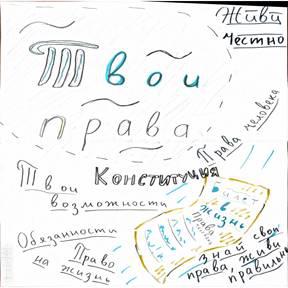 Живи
Честно
Твои
права
Права человека
Конституция
Твои
возможности
Билет
в
жизнь
Права
Обязанности
Право
на жизнь
знай свои
права, живи
правильно